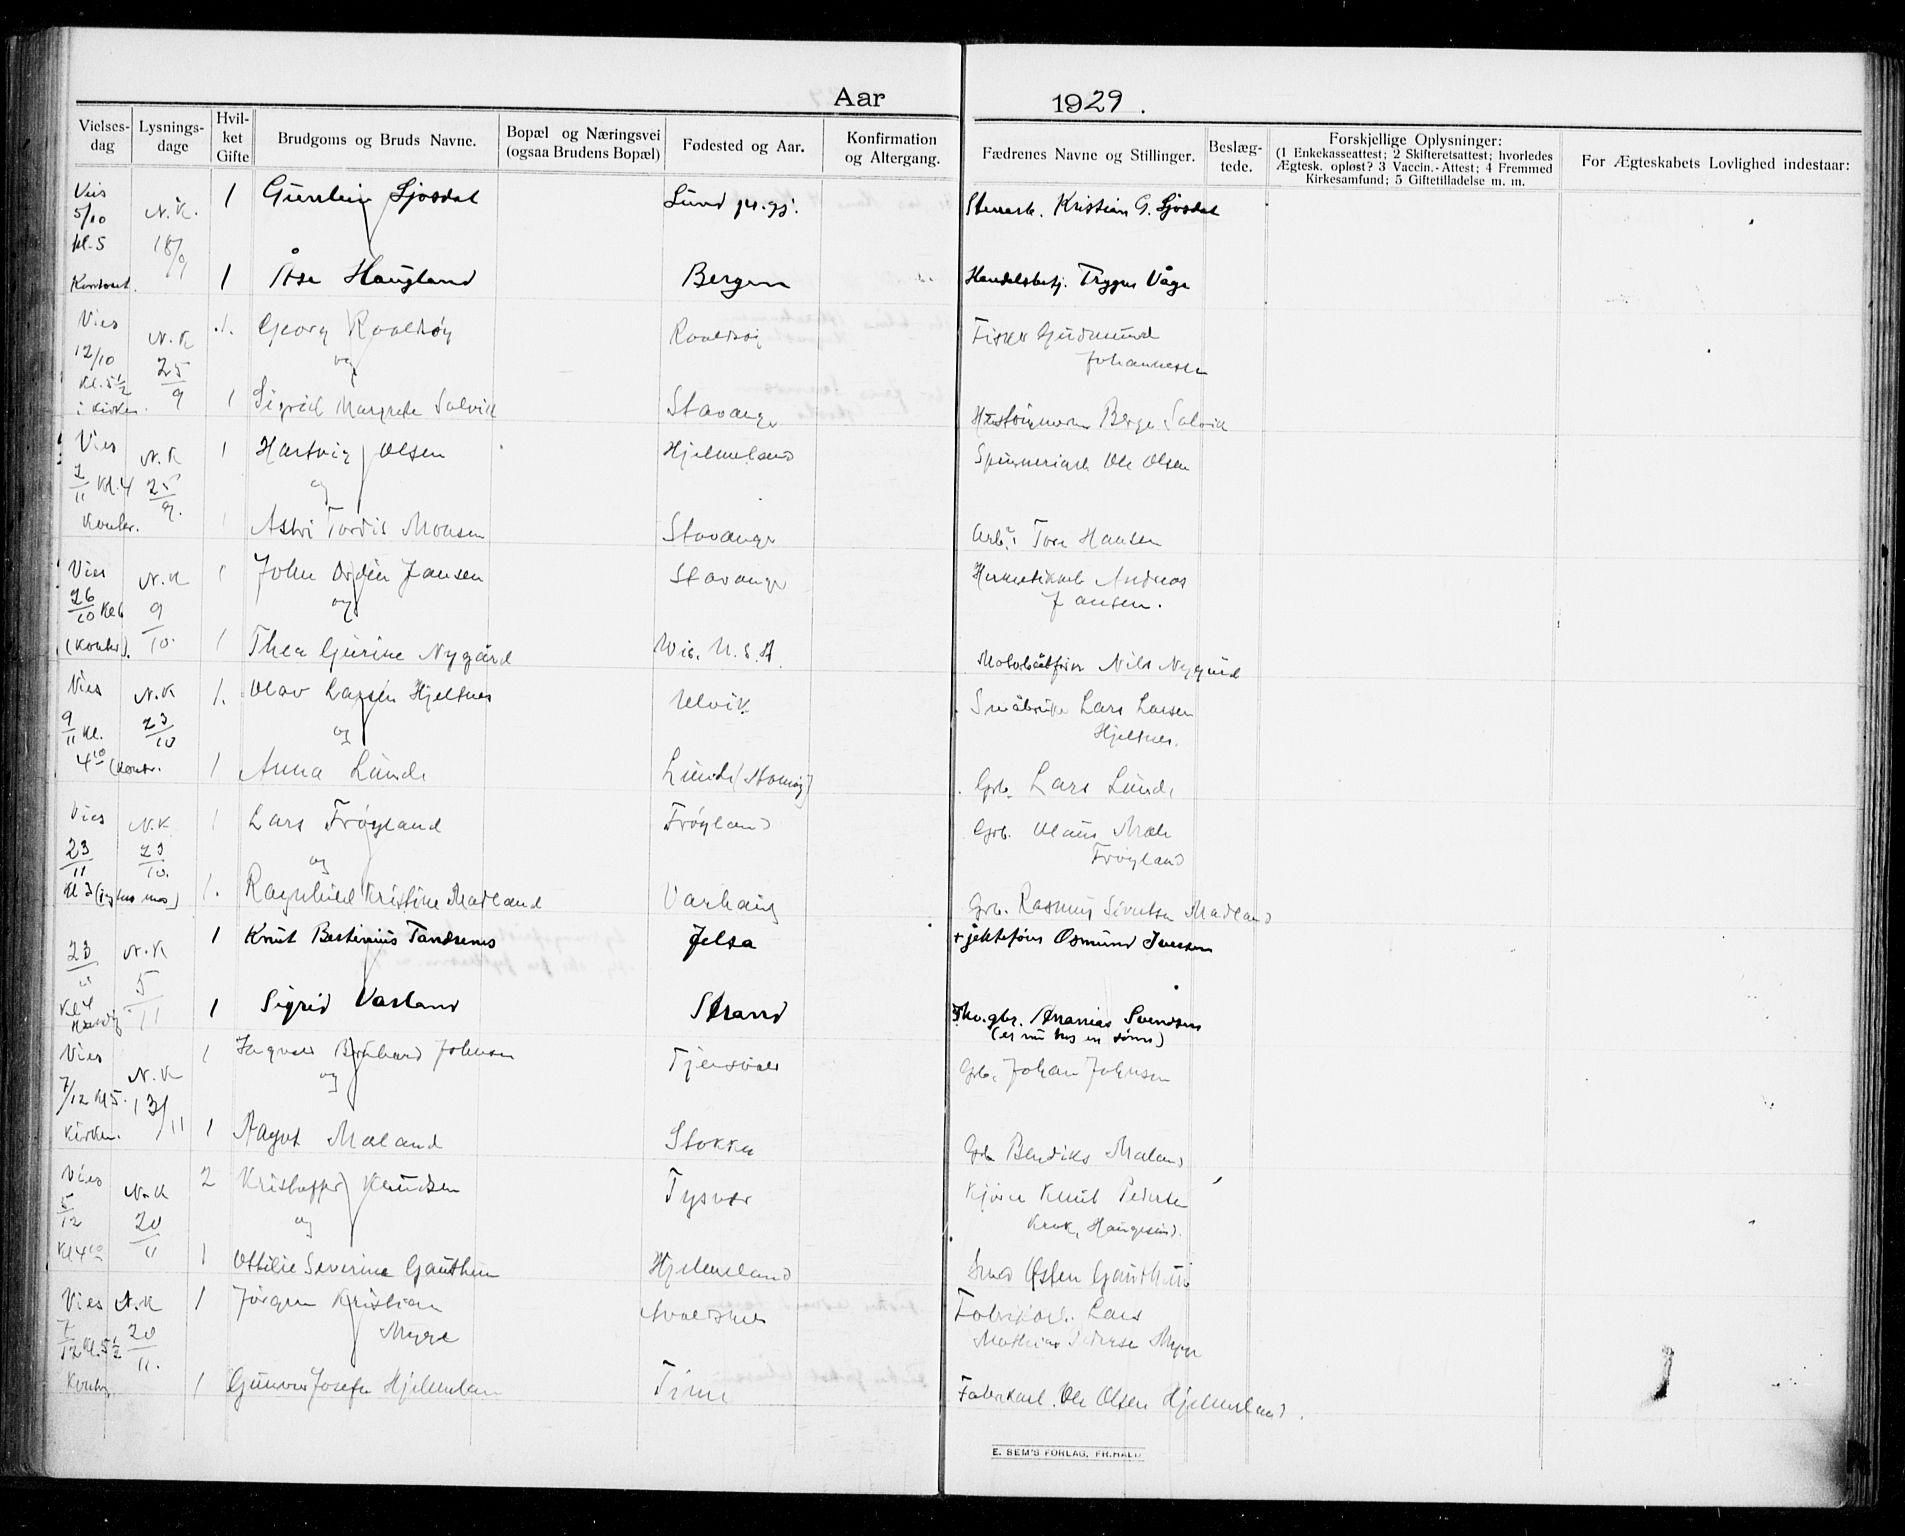 Aar 1929.
Vielses-dag
Lysnings-dage
Hvil-ket Gifte
Brudgoms og Bruds Navne.
Bopæl og Næringsvei (ogsaa Brudens Bopæl)
Fødested og Aar.
Konfirmation og Altergang.
Fædrenes Navne og Stillinger.
Beslæg-tede.
Forskjellige Oplysninger: (1 Enkekasseattest; 2 Skifteretsattest; hvorledes Ægtesk. opløst? 3 Vaccin.-Attest; 4 Fremmed Kirkesamfund; 5 Giftetilladelse m. m.
For Ægteskabets Lovlighed indestaar:
Vies N.K. 1 Sjosdal Lund Kristian G. Sjosdal
5/10 18/9
kl. 5
Kontoret. 1 Åse Haugland Bergen Handelsbetj. Trygve Våge
Vies N.K 1. Georg Roaldsøy Roaldsøy Fisker Gudmund
12/10 25/9 og Johannessen
Kl. 5½
i kirken. 1 Sigrid Margrete Solvik Stavanger Berge Solvik
Vies N.K 1 Hartvig Olsen Hjelmeland Spinneriarb Ole Olsen
2/11 Kl. 4 25/9. og
Kontor. 1 Astri Tordis Monsen Stavanger Arb. Tore Hansen
Vies N.K 1 John Jansen Stavanger Hermetikarb Andreas
26/10 Kl 6 9/10. og Jansen.
(Kontor). 1 Thea Gurine Nygård Wis. U.S.A. Nils Nygård
Vies N.K 1. Olav Larsen Hjeltnes Ulvik Småbruker Lars Larsen
9/11 Kl. 23/10 og Hjeltnes.
4¹⁰ (Kontor. 1 Anna Lunde Lunde Grb. Lars Lunde
Vies N.K. 1 Lars Frøyland Frøyland Grb. Olaus Male
23/11 23/10. og Frøyland
Kl 3 1. Ragnhild Kristine Madland Varhaug Grb. Rasmus Sivertsen Madland
23/11 N.K 1 Knut Bertinius Tandrenes Jelsa + jektefører Osmund Iversen
Kl 4 5/11 1 Sigrid Vasland Strand Ananias Svendsen
(er nu hos en sønn)
Vies N.K 1 Ingvar Johnsen Tjensvoll Grb. Johan Johnsen
7/12 Kl 5. 13/11 og
Kirken. 1 Aagot Maland Stokka Grb Bendiks Maland
Vies N.K 2 Kristoffer Knudsen Tysvær Kjører Knut Pedersen
5/12 20/11 og Krok, Haugesund.
Kl 4¹⁰ 1 Ottilie Severine Gauthun Hjelmeland Østen Gauthun
Vies N.K 1 Jörgen Kristian Avaldsnes Fabrikarb. Lars
7/12 Kl. 5½ 20/11. Myge Mathias Pedersen Myge
Kontor. 1 Gunvor Josefa Hjelmeland Time Fabrikarb. Ole Olsen Hjelmeland.
E. SEM'S FORLAG, FR.HALD